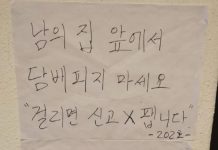 남의 집 앞에서
담배피지 마세오
"걸리면 신고X팹니다"
-202호-